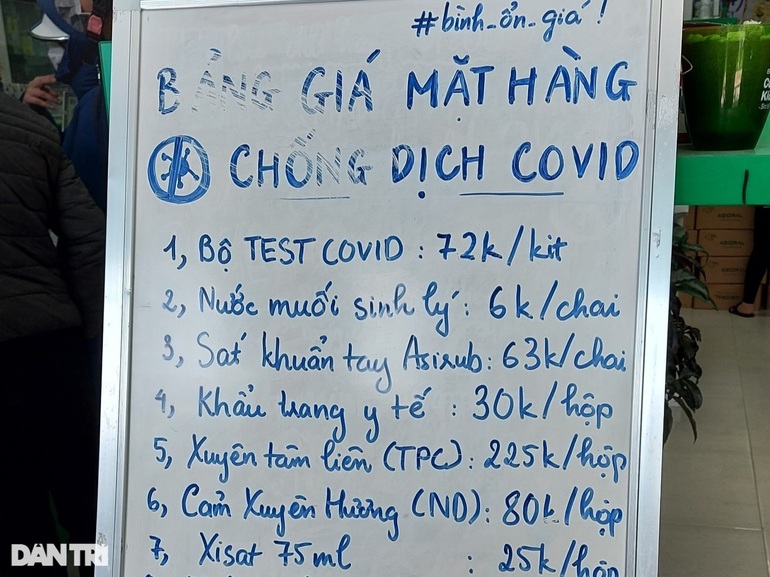 #bình-ổn-giá!
BẢNG GIÁ MẶT HÀNG
CHỐNG DỊCH COVID
1, Bộ TEST COVID : 72k/kit
2, Nước muối sinh lý : 6k/chai
3, Sát khuẩn tay Asirub: 63k/chai
4, Khẩu trang y tế : 30k/hộp
5, Xuyên tâm liên (TPC): 225k/hộp
6, Cảm Xuyên Hương (ND): 80k/hộp
7, Xisat 75ml : 25k/hộp
DÂN TRÍ